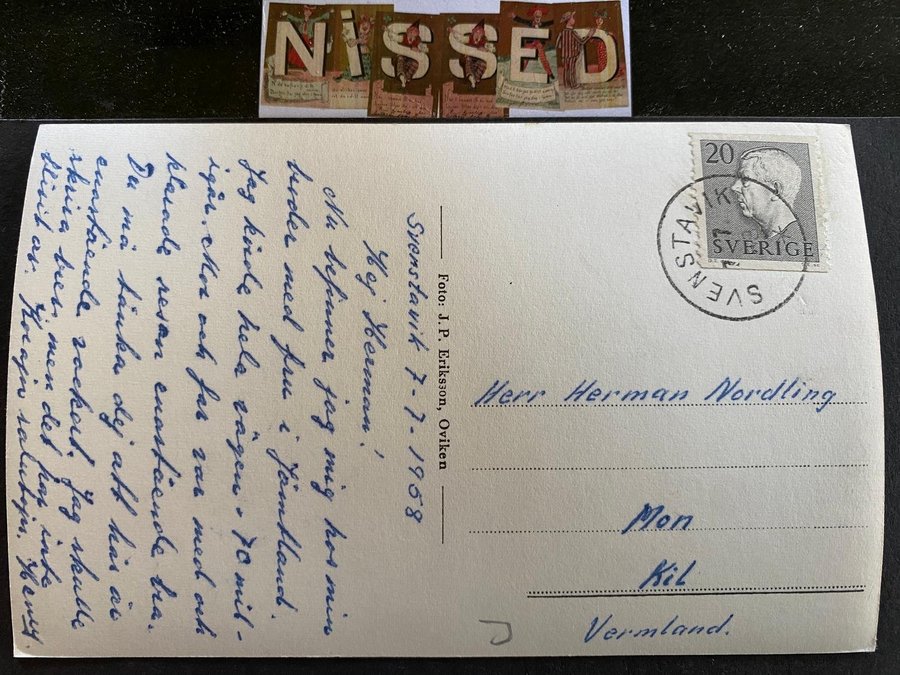 NiSSED
Svenstavik 7-7-1958
Hej Herman,
Nu befinner jag mig hos min
broder med fru i Jämtland.
Jag körde hela vägen. 70 mil -
igår. Mor och far var med och
klarade resan enastående bra.
Du må tänka dej att här är
enastående vackert. Jag skulle
skriva brev men det har inte
blivit av. Korajn salutojn. Henry
Foto: J. P. Eriksson, Oviken
20
SVERIGE
SVENSTAVIK
Herr Herman Nordling
Mon
Kil
Vermland.